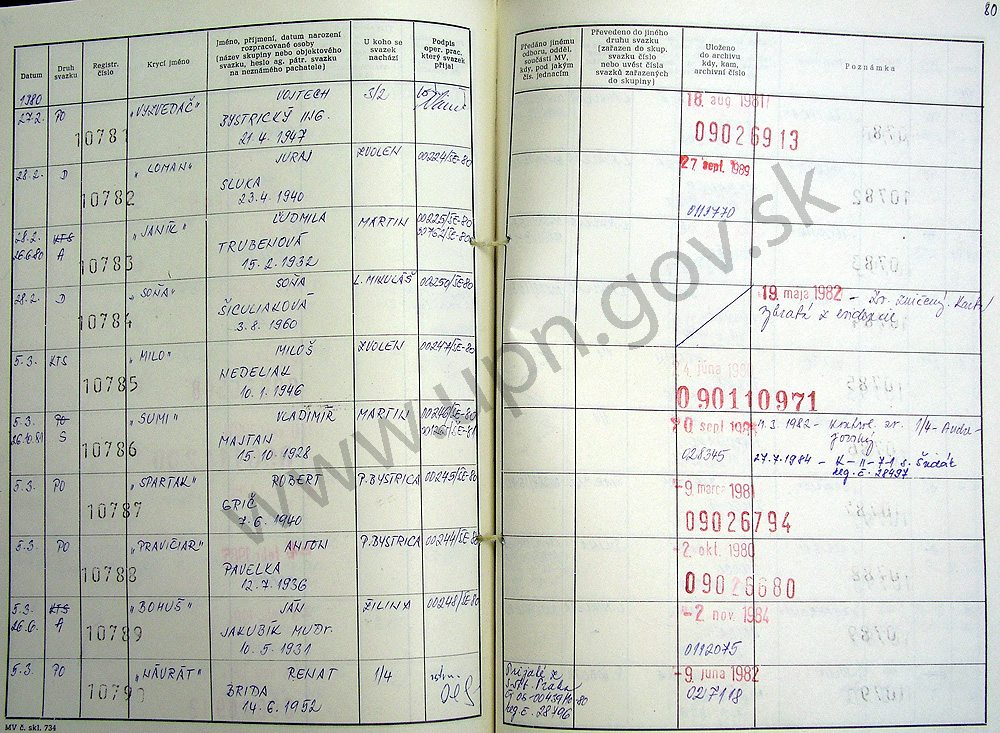 80
Datum
Druh svazku
Registr. číslo
Krycí jméno
Jméno, příjmení, datum narození rozpracované osoby (název skupiny nebo objektového svazku, heslo ag. pátr. svazku na neznámého pachatele)
U koho se svazek nachází
Podpis oper. prac. který svazek přijal
Předáno jinému odboru, odděl. součásti MV, kdy, pod jakým čís. jednacím
Převedeno do jiného druhu svazku (zařazen do skup. svazku číslo nebo uvést čísla svazků zařazených do skupiny)
Uloženo do archivu kdy, kam, archivní číslo
Poznámka
1980
27.2. PO 10781 „VYZVEDAČ" VOJTECH 3/2
BYSTRICKÝ ING.
21. 4. 1947
18. aug. 1981
09026913
28.2. D 10782 „LOMAN" JURAJ ZVOLEN 00224/SE-80
SLUKA
23. 4. 1940
27 sept. 1989
0113770
28.2. KTS 10783 „JANÍK" ĽUDMILA MARTIN 00225/SE-80
26.6.80 A TRUBENOVÁ 00762/SE-80
15. 2. 1932
28.2. D 10784 „SOŇA" SOŇA L. MIKULÁŠ 00250/SE-80
ŠICULIAKOVÁ
3. 8. 1960
19. mája 1982 - Zv. zničený. Karta
vybratá z evidencie
5.3. KTS 10785 „MILO" MILOŠ ZVOLEN 00247/SE-80
NEDELIAK
10. 1. 1946
júna
090110971
5.3. PO 10786 „SUMI" VLADIMÍR MARTIN 00246/SE-80
26.10.81 S MAJTAN
15. 10. 1928
sept.
028345
3. 1982 - kontrol. zv. 1/4-
27.7.1984 - K-II-71 s. Šudák
reg. č. 28497
5.3. PO 10787 „SPARTAK" ROBERT P. BYSTRICA 00245/SE-80
GRIČ
7. 6. 1940
-9. marca 1981
09026794
5.3. PO 10788 „PRAVIČIAR" ANTON P. BYSTRICA 00244/SE-80
PAVELKA
12. 7. 1936
-2. okt. 1980
09026680
5.3. KTS 10789 „BOHUŠ" JÁN ŽILINA 00248/SE-80
26.6. A JAKUBÍK MUDr.
10. 5. 1931
-2. nov. 1984
0112075
5.3. PO 10790 „NÁVRAT" RENAT 1/4
BRIDA
14. 6. 1952
Praha
reg. č. 28796
-9. júna 1982
027118
MV č. skl. 734
www.upn.gov.sk